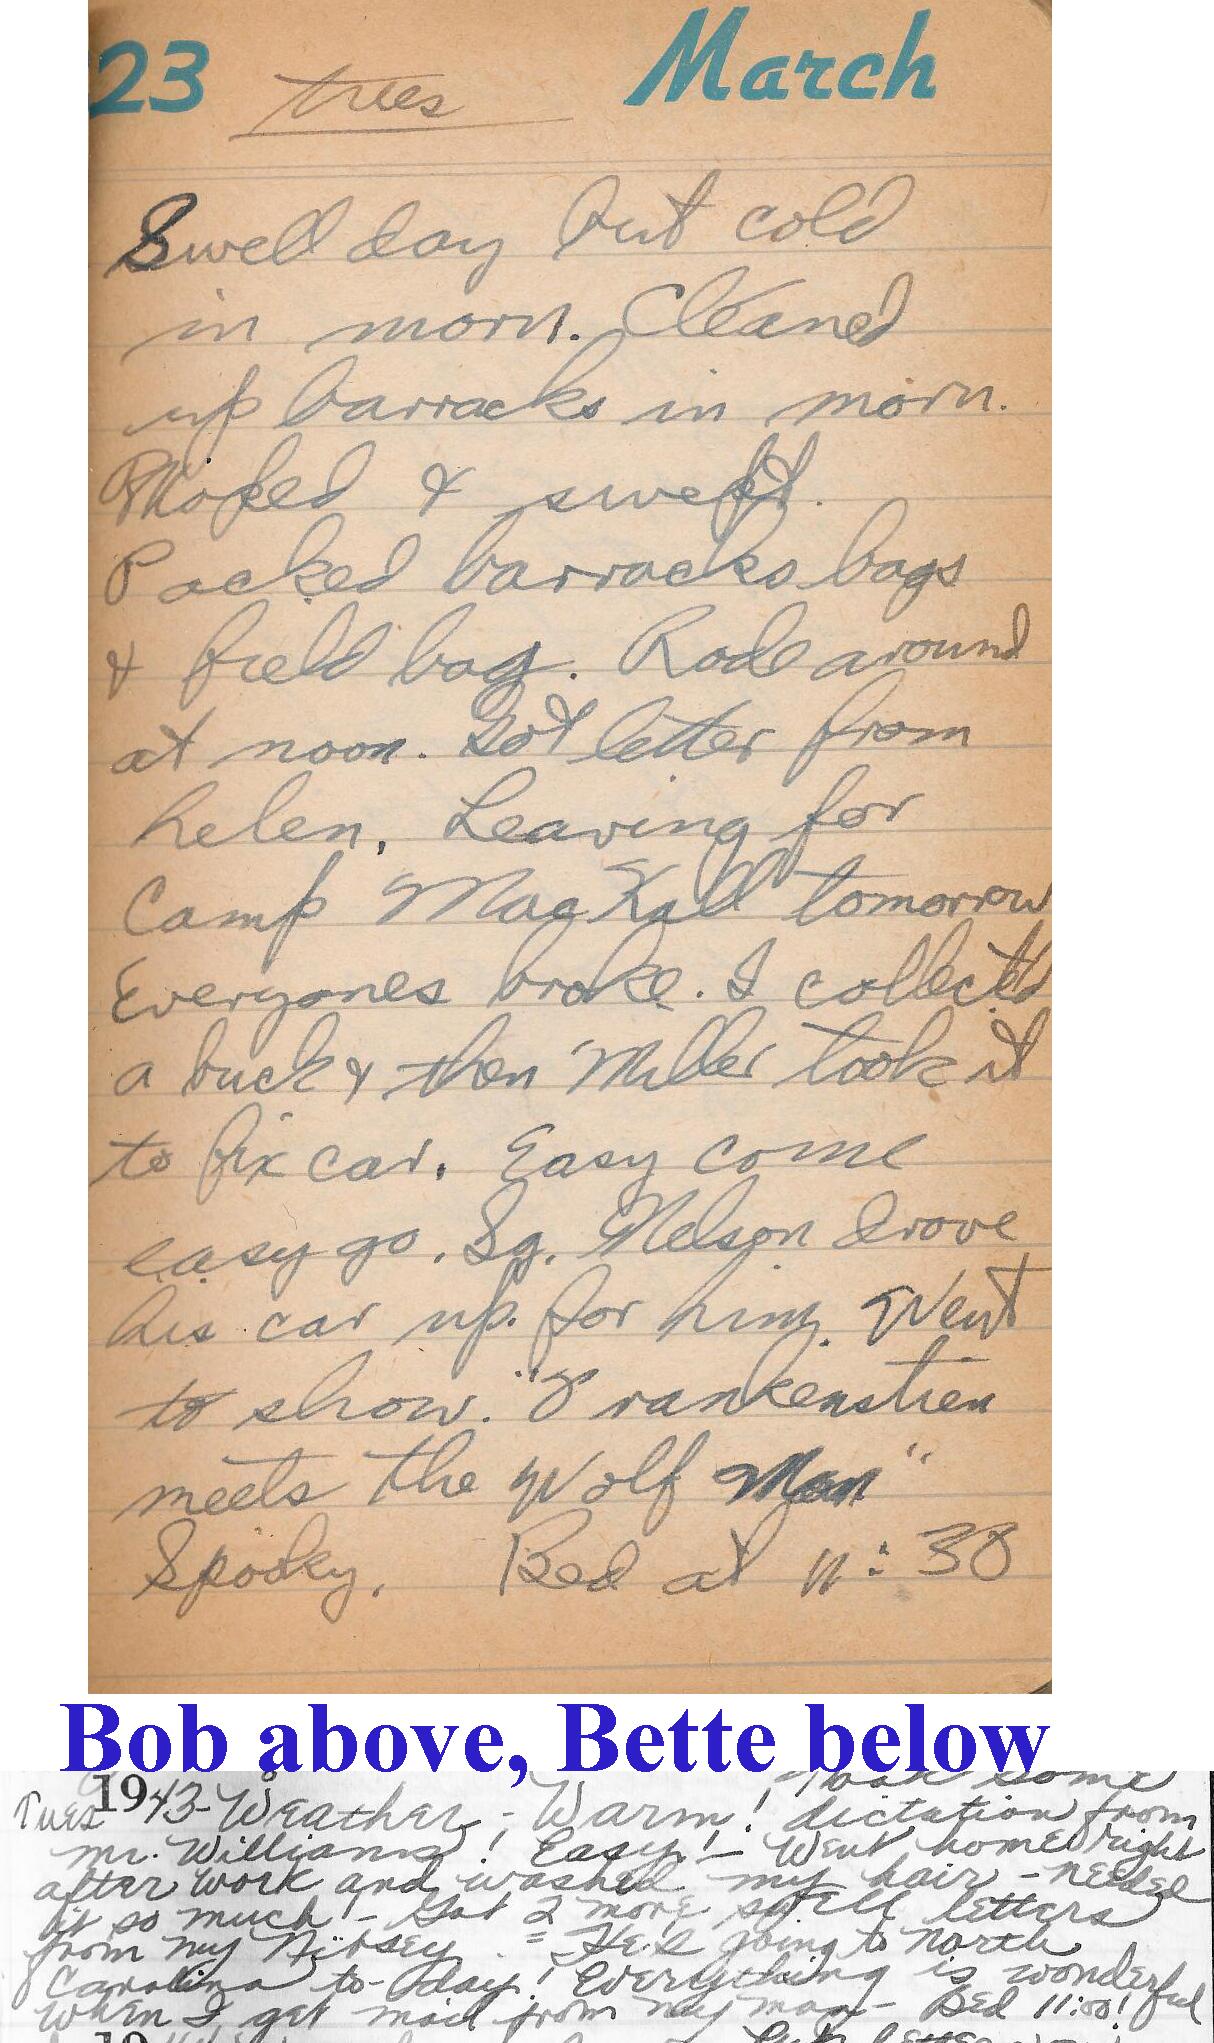 23 tues March
Swell day but cold
in morn. Cleaned
up barracks in morn.
Moped & swept.
Packed barracks bags
& field bag. Rode around
at noon. Got letter from
helen. Leaving for
Camp MacKall tomorrow
Everyones broke. I collected
a buck & then Miller took it
to fix car. Easy come
easy go. Sg. Nelson drove
his car up for him. Went
to show. "Frankenstien
meets the Wolf Man"
Spooky. Bed at 11:30
Bob above, Bette below
Took some
Tues 1943-Weather,- Warm! dictation from
mr. Williams! Easy! - Went home right
after work and washed my hair - needed
it so much! - Got 2 more swell letters
from my - He's going to North
Carolina to-day! Everything is wonderful
when I get mail from my man - Bed 11:00!
19
letter